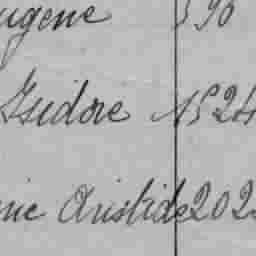 ugene 590
Isidore 1524
nie Aristide 202